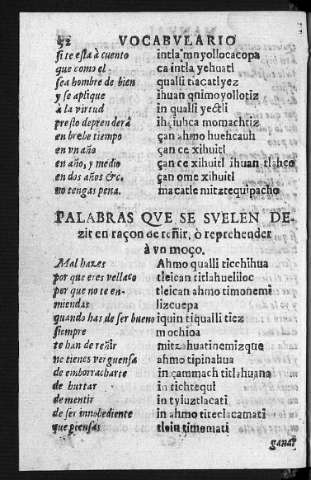 92 VOCABVLARIO
si te esta à cuento intla mnyollocacopa
que como el ca intla yehuatl
sea hombre de bien qualli tiacatlyez
y se aplique ihuan qnimoyollotiz
à la virtud in qualli yectli
presto deprenderà ih iuhca momachtiz
en brebe tiempo çan ahmo huehcauh
en vn año çan ce xihuitl
en año, y medio çan ce xihuitl ihuan tlahco
en dos años &c. çan ome xihuitl
no tengas pena. macatle mitztequipacho
PALABRAS QVE SE SVELEN DE-
zit en raçon de reñir, ò reprehender
à vn moço.
Mal hazes Ahmo qualli ticchihua
por que eres vellaco tleican titlahueliloc
por que no te en- tleican ahmo timonemi
miendas lizcuepa
quando has de ser bueno iquin tiqualli tiez
siempre mochipa
te han de reñir mitzahuatinemizque
no tienes verguensa ahmo tipinahua
de emborracharte in çammach titlahuana
de hurtar in tichtequi
de mentir in tyluztlacati
de ser innobediente in ahmo titeclacamati
que piensas tlein timomati
ganar